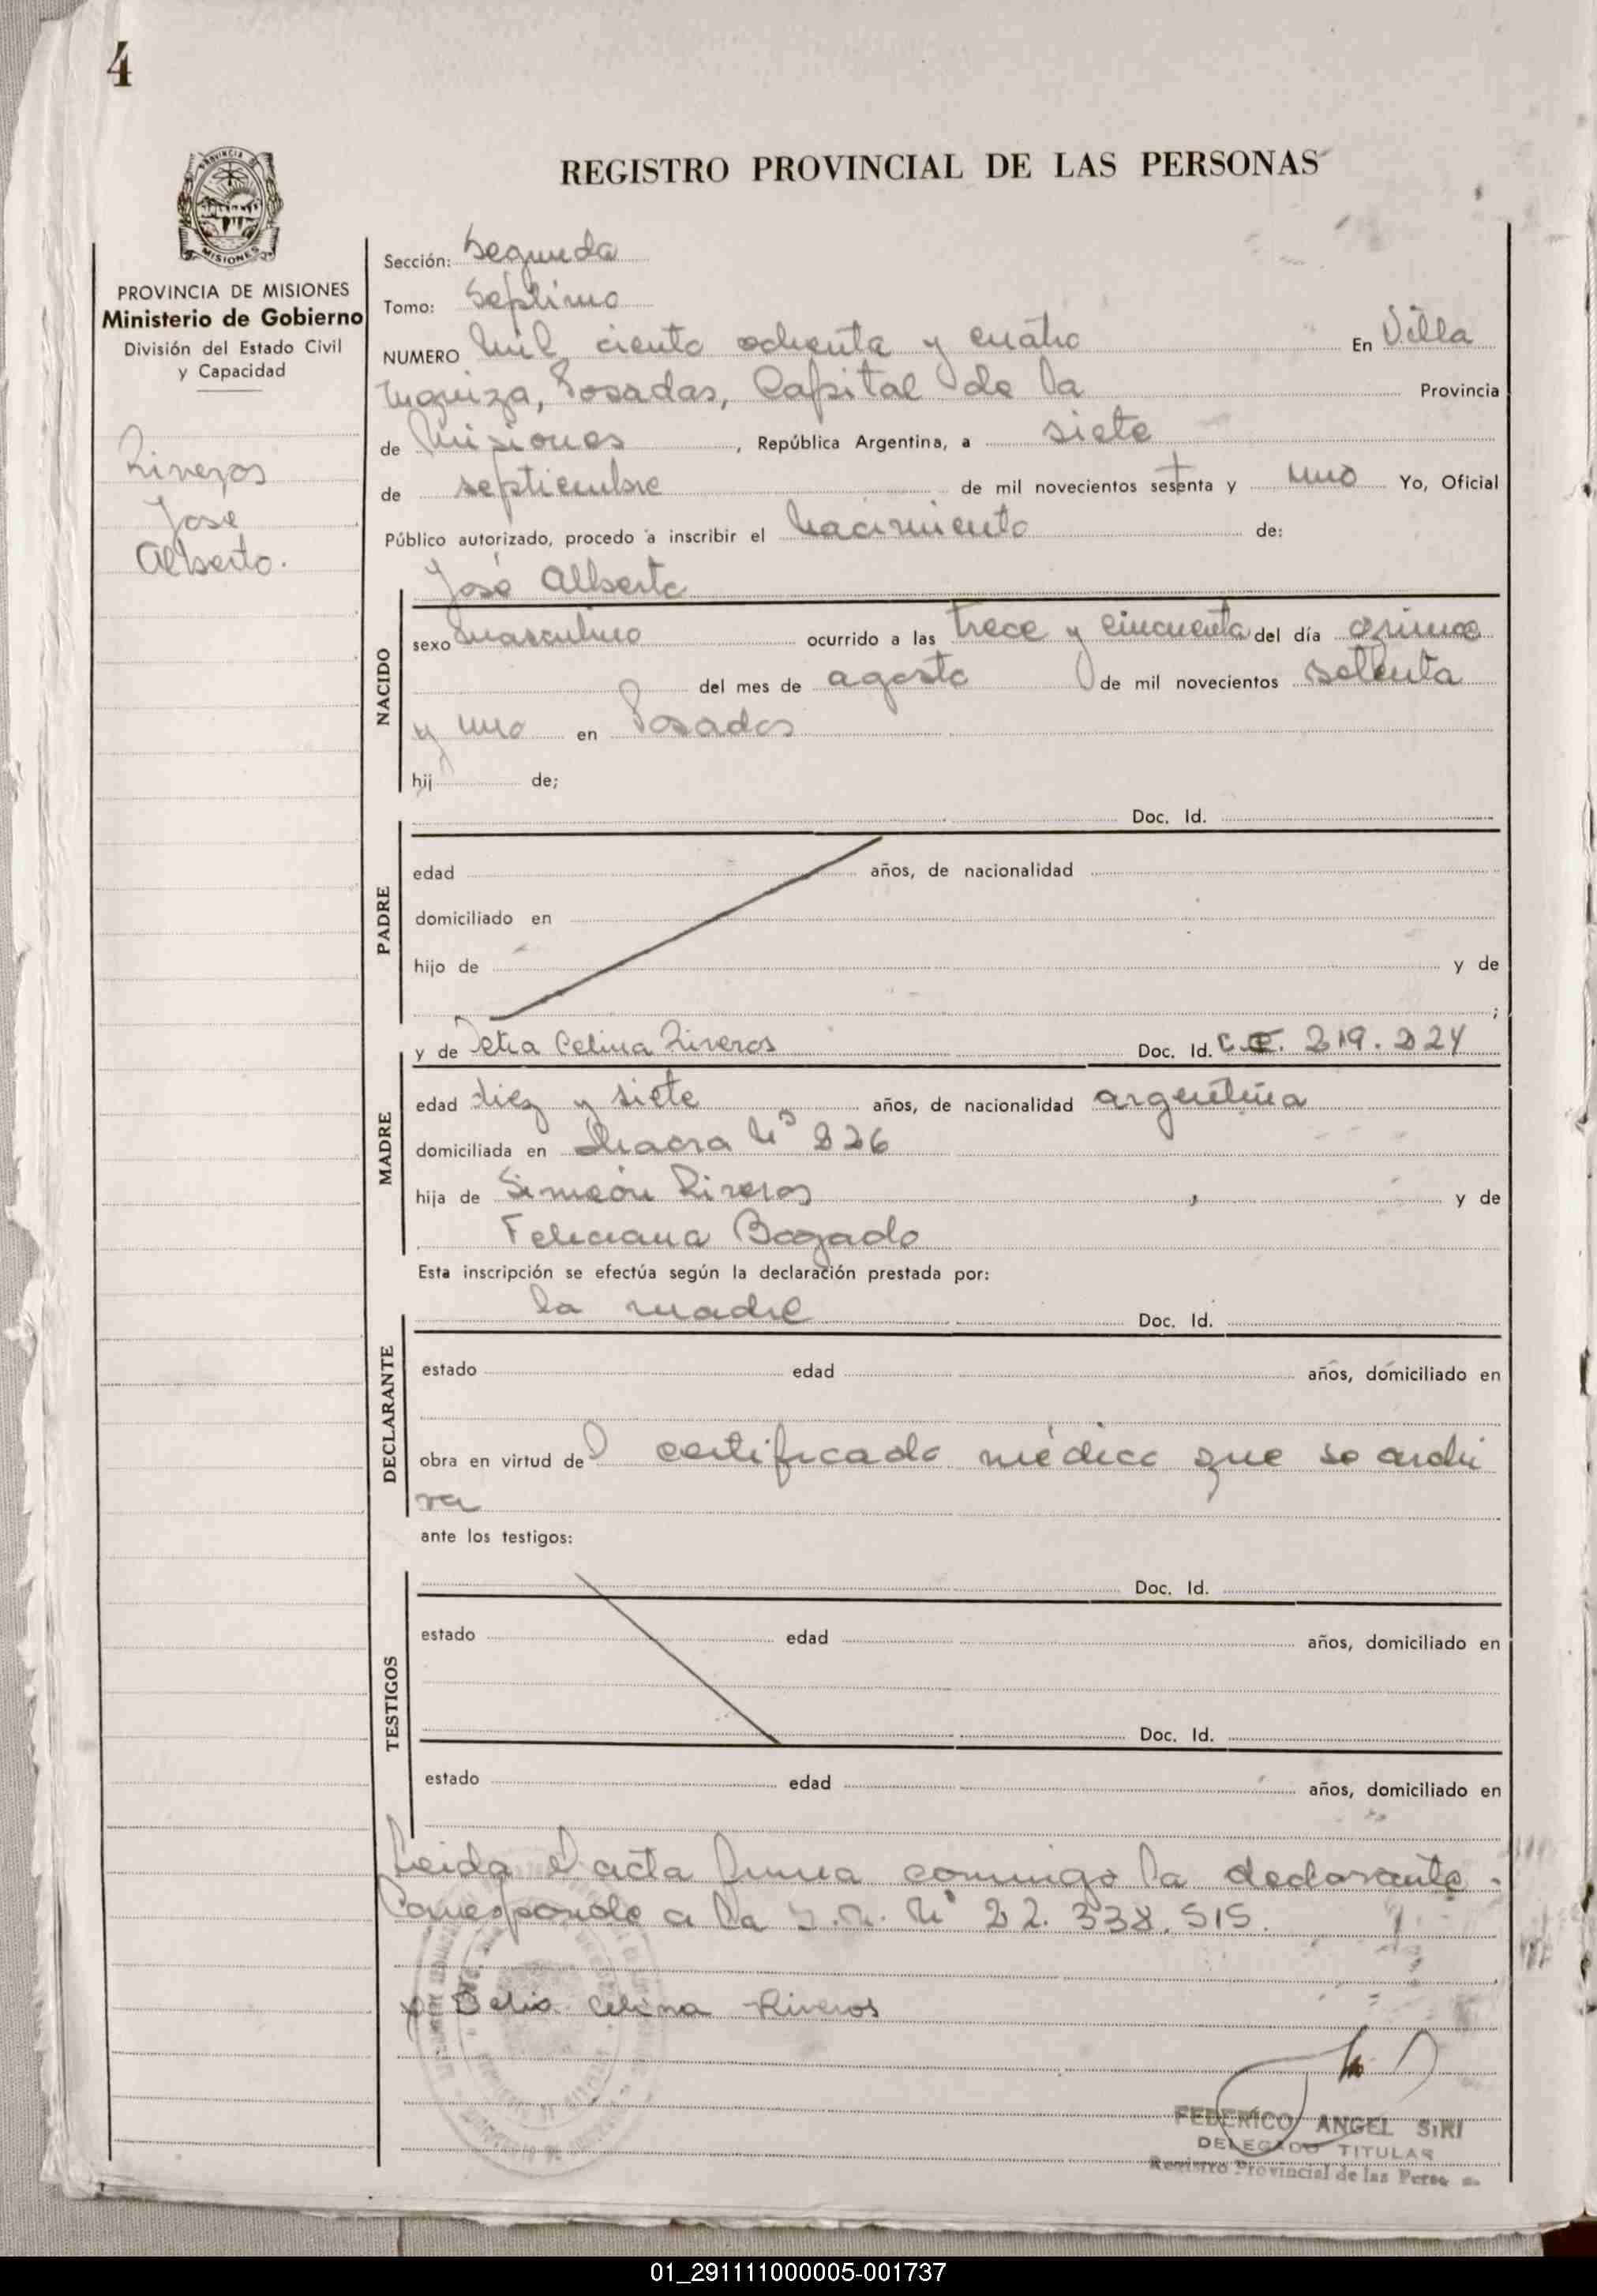 4
PROVINCIA DE
MISIONES
PROVINCIA DE MISIONES
Ministerio de Gobierno
División del Estado Civil
y Capacidad
Riveros
José
Alberto.
REGISTRO PROVINCIAL DE LAS PERSONAS
Sección: Segunda
Tomo: Septimo
NUMERO Mil ciento ochenta y cuatro En Villa
Urquiza, Posadas, Capital de la Provincia
de Misiones, República Argentina, a siete
de septiembre de mil novecientos setenta y uno Yo, Oficial
Público autorizado, procedo a inscribir el nacimiento de:
José Alberto
NACIDO
sexo masculino ocurrido a las trece y cincuenta del día quince
del mes de agosto de mil novecientos setenta
y uno en Posadas
hij de;
Doc. Id.
PADRE
edad años, de nacionalidad
domiciliado en
hijo de y de
;
y de Celina Riveros Doc. Id. C.I. 219.224
MADRE
edad diez y siete años, de nacionalidad argentina
domiciliada en Chacra Nº 226
hija de Simeón Riveros y de
Feliciana Bogado
Esta inscripción se efectúa según la declaración prestada por:
la madre Doc. Id.
DECLARANTE
estado edad años, domiciliado en
obra en virtud del certificado médico que se archi
va
ante los testigos:
Doc. Id.
TESTIGOS
estado edad años, domiciliado en
Doc. Id.
estado edad años, domiciliado en
Leida el acta firma conmigo la declarante.
Corresponde a la Nº 22.338.515.
Celina Riveros
FEDERICO ANGEL SIRI
DELEGADO TITULAR
Registro Provincial de las Perso
01_291111000005-001737